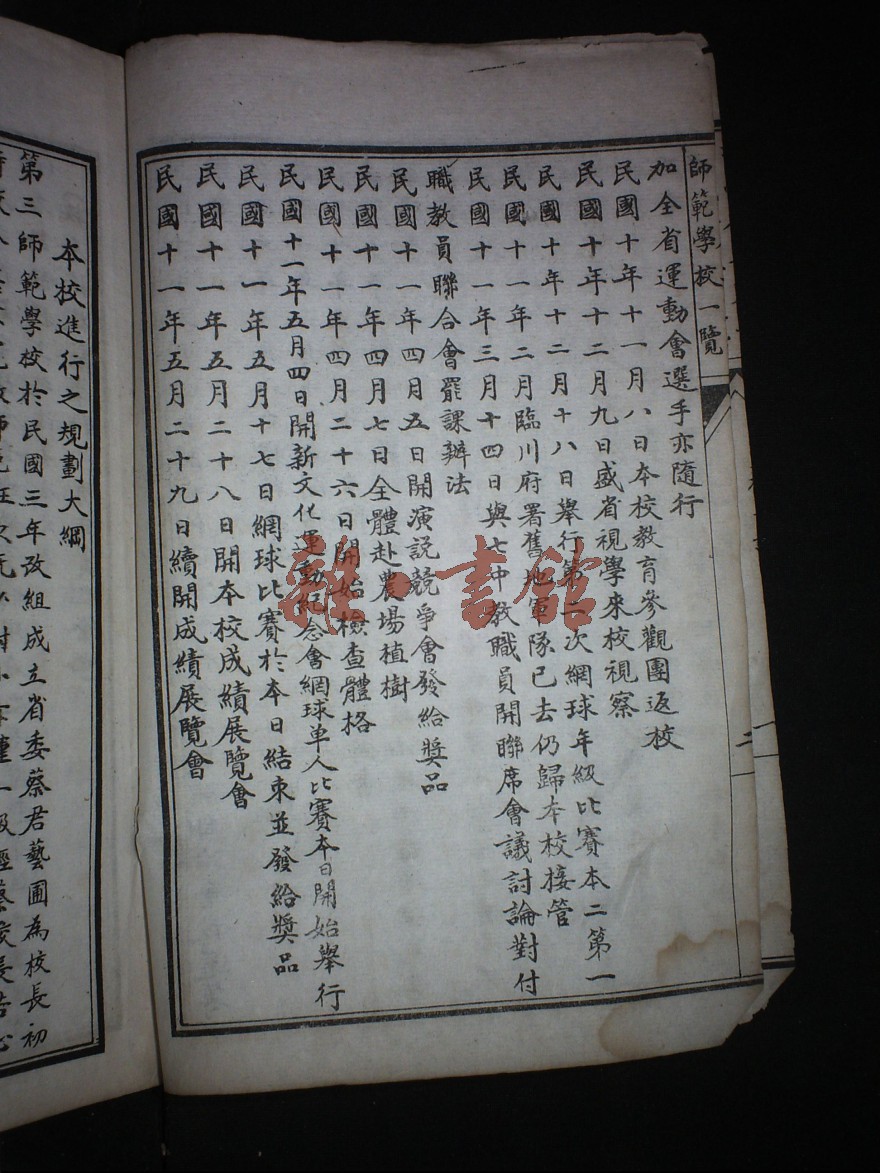 師範學校一覽
加全省運動會選手亦隨行
民國十年十一月八日本校教育參觀團返校
民國十年十二月九日盛省視學來校視察
民國十年十二月十八日舉行第二次網球年級比賽本二第一
民國十一年二月臨川府署舊地軍隊已去仍歸本校接管
民國十一年三月十四日與七中教職員開聯席會議討論對付
職教員聯合會罷課辦法
民國十一年四月五日開演說競爭會發給獎品
民國十一年四月七日全體赴農場植樹
民國十一年四月二十六日開始檢查體格
民國十一年五月四日開新文化運動紀念會網球单人比賽本日開始舉行
民國十一年五月十七日網球比賽於本日結束並發給獎品
民國十一年五月二十八日開本校成績展覽會
民國十一年五月二十九日續開成績展覽會
本校進行之規劃大綱
第三師範學校於民國三年改組成立省委蔡君藝圃為校長初
雜·書館